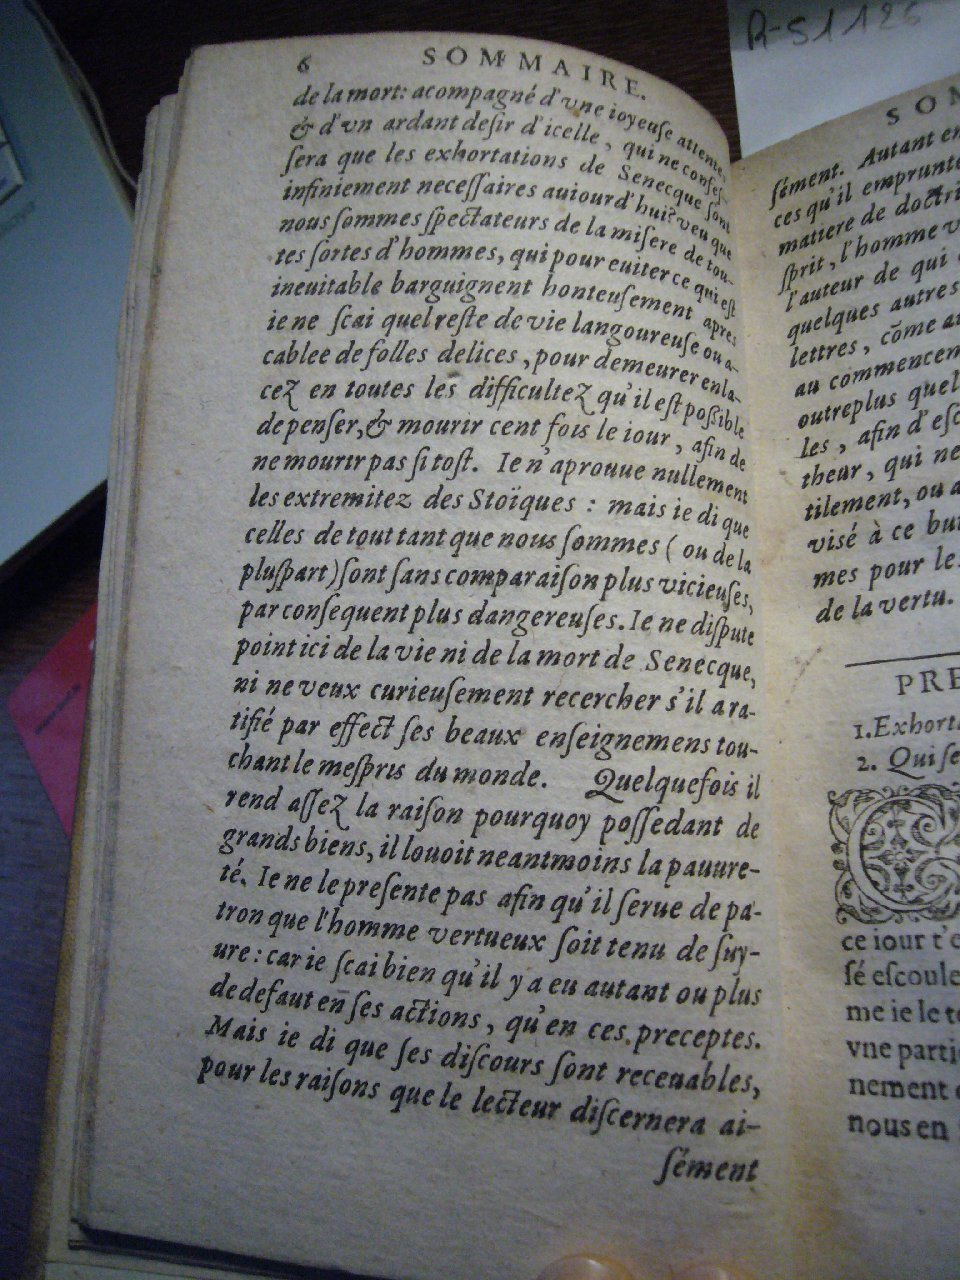 R-51126
6 SOMMAIRE.
de la mort: acompagné d'vne ioyeuse attente,
& d'vn ardant desir d'icelle, qui ne confes-
sera que les exhortations de Senecque sont
infiniement necessaires auiourd'hui? veu que
nous sommes spectateurs de la misere de tou-
tes sortes d'hommes, qui pour euiter ce qui est
ineuitable barguignent honteusement apres
ie ne scai quel reste de vie langoureuse ou a-
cablee de folles delices, pour demeurer enla-
cez en toutes les difficultez qu'il est possible
de penser, & mourir cent fois le iour, afin de
ne mourir pas si tost. Ie n'aprouue nullement
les extremitez des Stoïques : mais ie di que
celles de tout tant que nous sommes (ou de la
pluspart) sont sans comparaison plus vicieuses,
par consequent plus dangereuses. Ie ne dispute
point ici de la vie ni de la mort de Senecque,
ni ne veux curieusement recercher s'il a ra-
tifié par effect ses beaux enseignemens tou-
chant le mespris du monde. Quelquefois il
rend assez la raison pourquoy possedant de
grands biens, il louoit neantmoins la pauure-
té. Ie ne le presente pas afin qu'il serue de pa-
tron que l'homme vertueux soit tenu de suy-
ure : car ie scai bien qu'il y a eu autant ou plus
de defaut en ses actions, qu'en ces preceptes.
Mais ie di que ses discours sont receuables,
pour les raisons que le lecteur discernera ai-
sément
SOM
sément. Autant en
ces qu'il emprunte
matiere de doctri
sprit, l'homme v
l'auteur de qui
quelques autres
lettres, cõme au
au commencem
outreplus quel
les, afin d'esc
theur, qui ne
tilement, ou a
visé à ce but
mes pour les
de la vertu.
PRE
1. Exhort
2. Qui se
C
ce iour t'e
sé escoule
me ie le te
vne parti
nement e
nous en